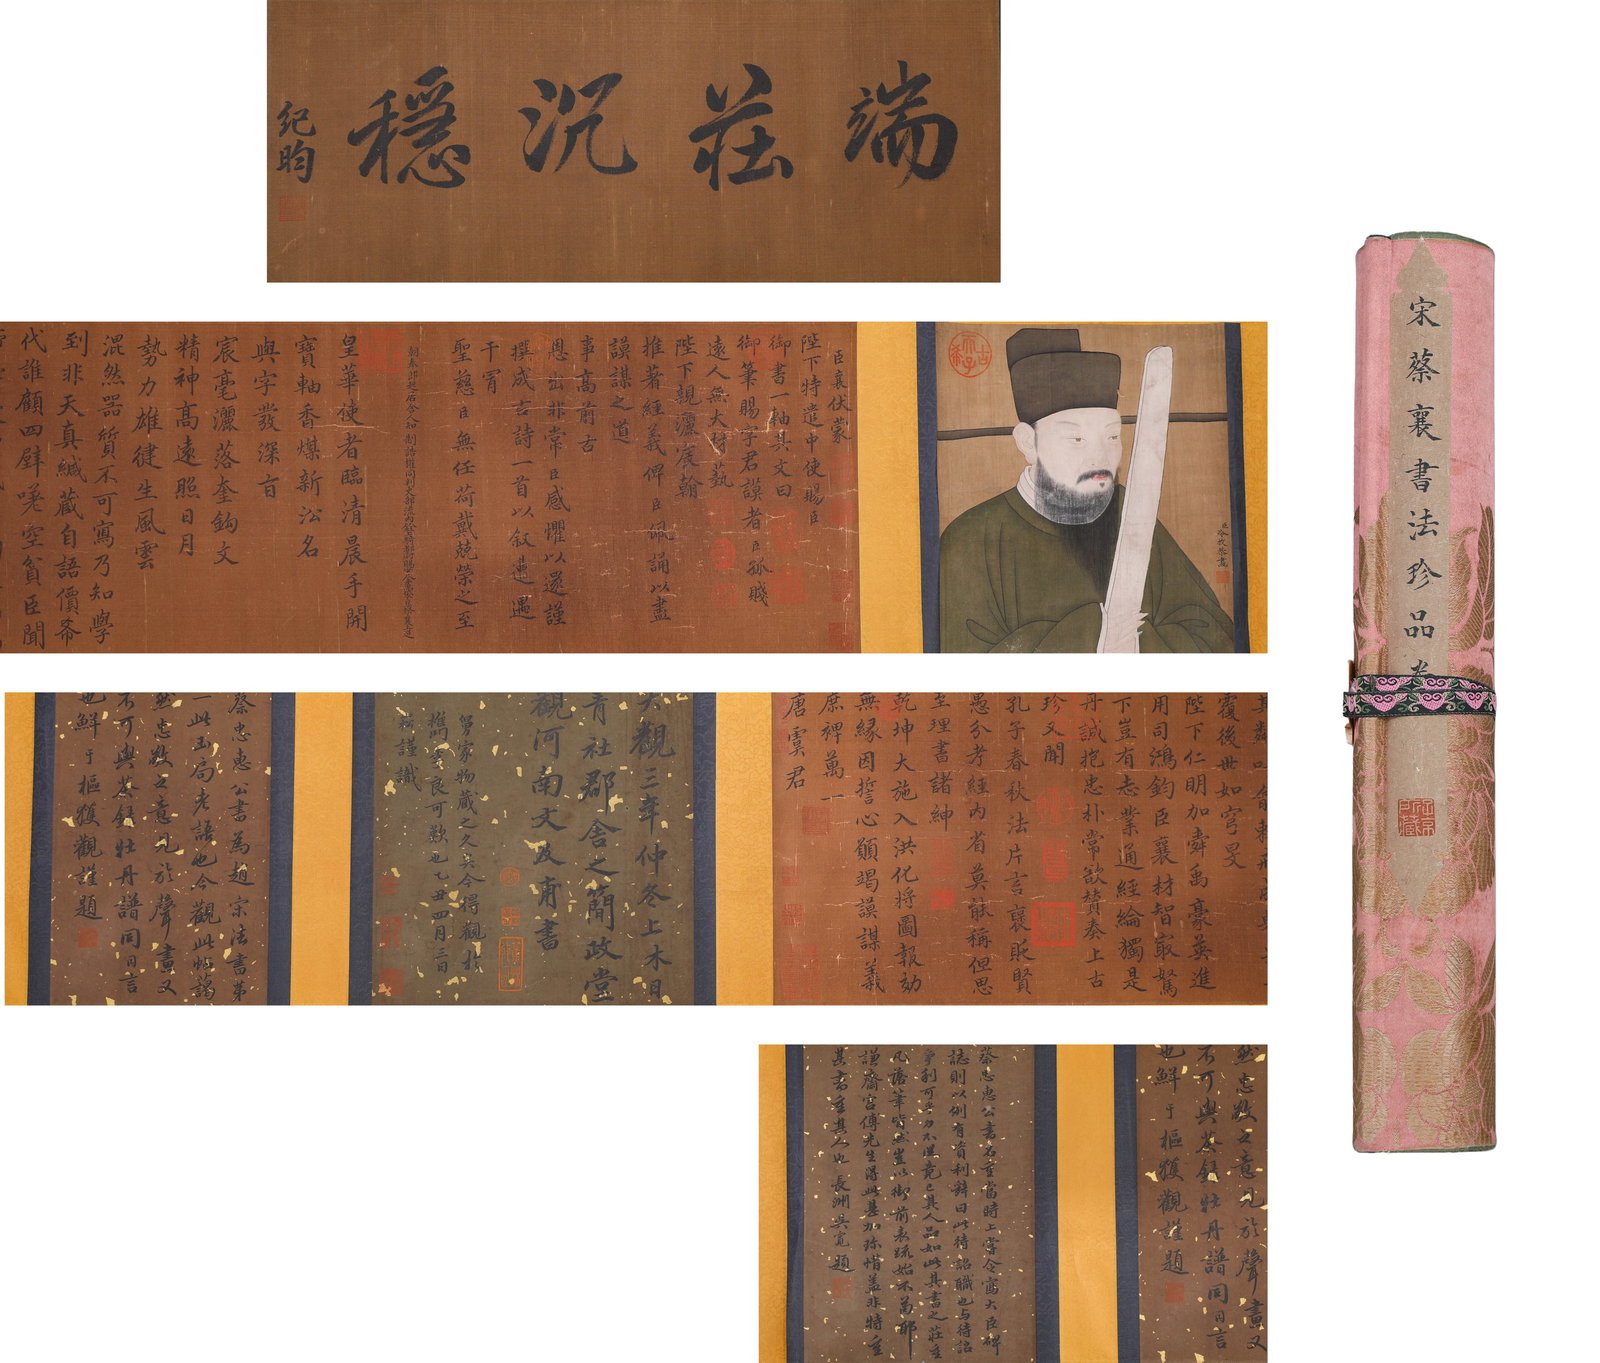 端莊沉穩
紀昀
臣冷枚恭畫
臣襄伏蒙
陛下特遣中使賜臣
御書一軸其文曰
御筆賜字君謨者臣孤賤
遠人無大材藝
陛下親灑宸翰
推著經義俾臣佩誦以盡
謨謀之道
事高前古
恩出非常臣感懼以還謹
撰成古詩一首以敘遭遇
干冒
聖慈臣無任荷戴兢榮之至
皇華使者臨清晨手開
寶軸香煤新沁名
與字發深旨
宸毫灑落奎鉤文
精神高遠照日月
勢力雄健生風雲
混然器質不可寫乃知學
到非天真緘藏自語價希
代誰顧四壁嗟空貧臣聞
覆後世如穹旻
陛下仁明加舜禹豪英進
用司鴻鈞臣襄材智最駑
下豈有志業通經綸獨是
丹誠抱忠朴常欲贊奏上古
珍又聞
孔子春秋法片言褒貶賢
愚分考經內省莫能稱但思
至理書諸紳
乾坤大施入洪化將圖報効
無緣因誓心願竭謨謀義
庶裨萬一
唐虞君
大觀三年仲冬上木日
青社郡舍之簡政堂
觀河南文及甫書
舅家物藏之久矣今得觀於
樵門李良可歎也乙丑四月三日
蔡忠惠公書為趙宋法書第
一此玉局老語也今觀此帖藹
然忠敬之意見於聲畫又
不可與茶錄牡丹譜同日言
也鮮于樞獲觀謹題
蔡忠惠公書名重當時上嘗令寫大臣碑
誌則以例有資利辭曰此待詔職也与待詔
爭利可乎力不從竟已其人品如此其書之莊重
凡落筆皆然豈以御前表疏始不苟耶
謙齋宮傅先生得此甚加珍惜蓋非特重
其書重其人也 長洲吳寬題
然忠敬之意見於聲畫又
不可與茶錄牡丹譜同日言
也鮮于樞獲觀謹題
宋蔡襄書法珍品卷